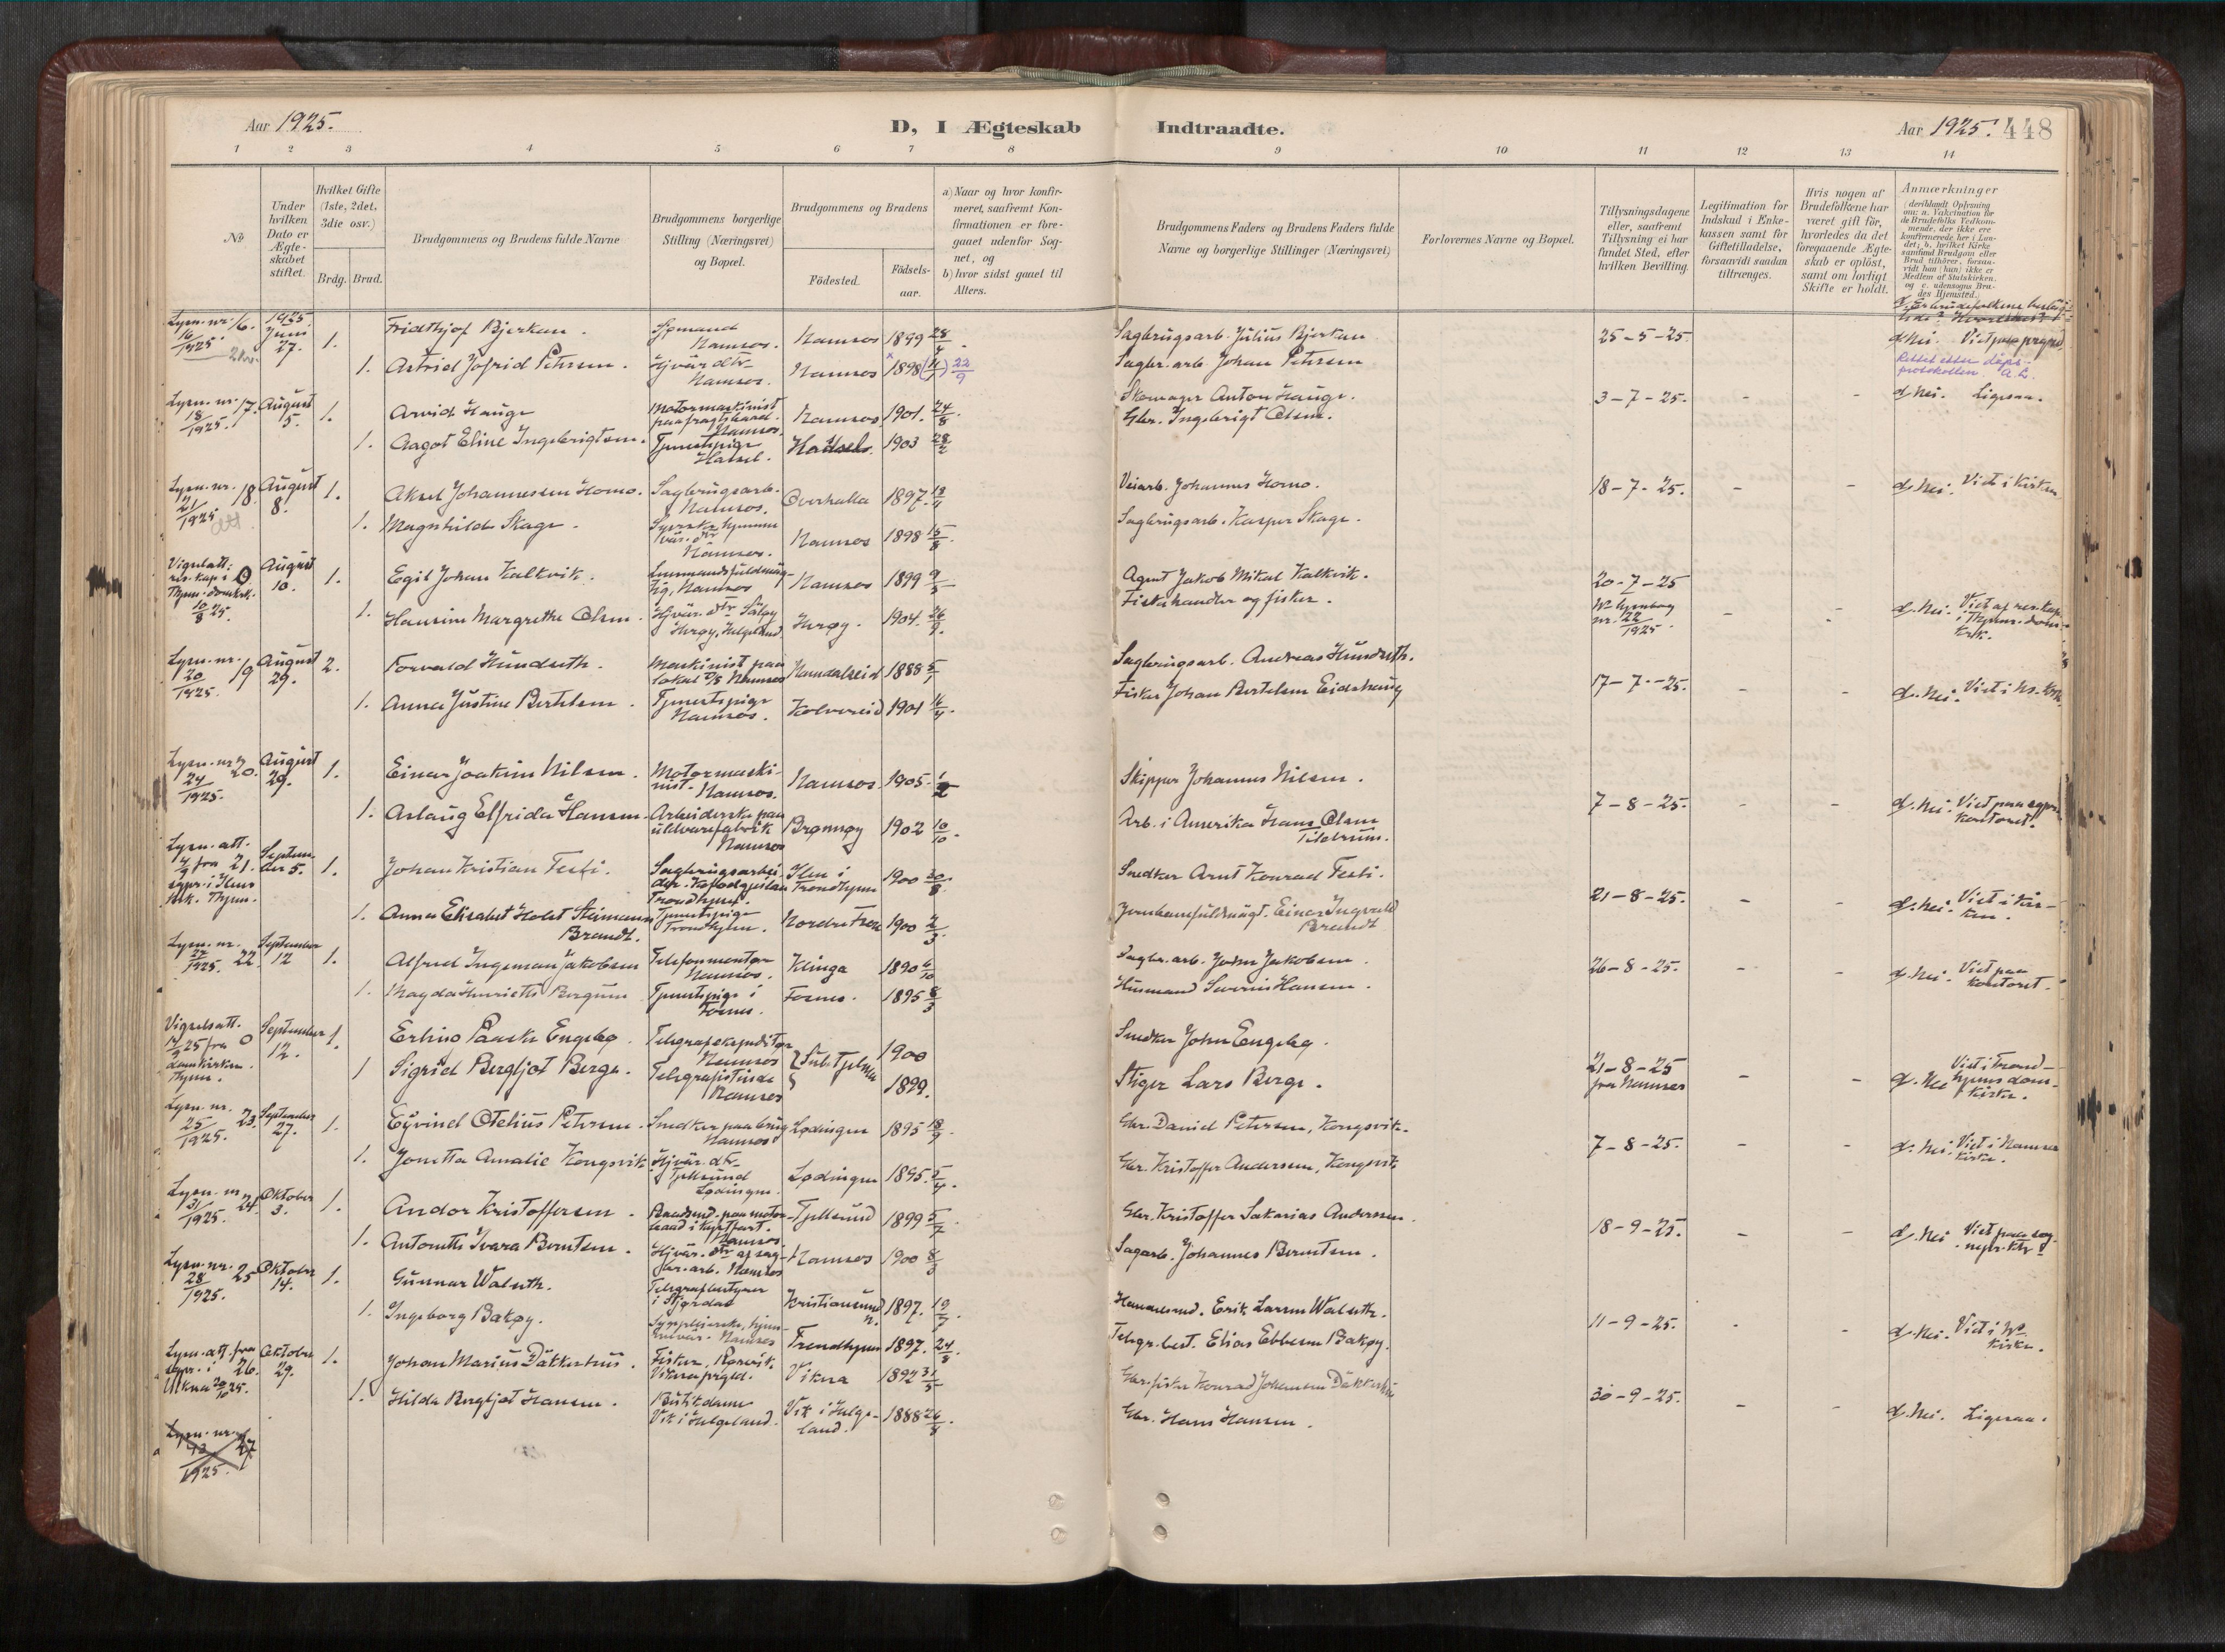 Aar 1925.
D, I Ægteskab
Indtraadte.
Aar 1925. 448
1 2 3 4 5 6 7 8 9 10 11 12 13 14
No
Under hvilken Dato er Ægteskabet stiftet.
Hvilket Gifte (1ste, 2det, 3die osv.)
Brdg. Brud.
Brudgommens og Brudens fulde Navne
Brudgommens borgerlige Stilling (Næringsvei) og Bopæl.
Brudgommens og Brudens
Födested.
Födsels-aar.
a) Naar og hvor konfir-
meret, saafremt Kon-
firmationen er fore-
gaaet udenfor Sog-
net, og
b) hvor sidst gaaet til
Alters.
Brudgommens Faders og Brudens Faders fulde
Navne og borgerlige Stillinger (Næringsvei)
Forlovernes Navne og Bopæl.
Tillysningsdagene
eller, saafremt
Tillysning ei har
fundet Sted, efter
hvilken Bevilling.
Legitimation for
Indskud i Enke-
kassen samt for
Giftetilladelse,
forsaavidt saadan
tiltrænges.
Hvis nogen af
Brudefolkene har
været gift för,
hvorledes da det
foregaaende Ægte-
skab er oplöst,
samt om lovligt
Skifte er holdt.
Anmærkninger
(deriblandt Oplysning
om: a. Vakcination for
de Brudefolks Vedkom-
mende, der ikke ere
konfirmerede her i Lan-
det; b, hvilket Kirke
samfund Brudgom eller
Brud tilhörer, forsaa-
vidt han (hun) ikke er
Medlem af Statskirken,
og c. udensogns Bru-
des Hjemsted.)
Lysn. nr. 16/1925. 16. 1925 Juni 27. 1. Fridthjof Bjerkan. Sjømand Namsos. Namsos 1899 28/4. Sagbrugsarb. Julius Bjerkan 25-5-25.
1. Astrid Jofrid Petersen. Hjvær. dtr Namsos. Namsos 1898 22/9 Sagbr. arb. Johan Petersen d. Nei.
Rettet etter dåps-
protokollen. A.L.
Lysn. nr. 18/1925. 17. August 5. 1. Arvid Hauge Motormaskinist Namsos. Namsos 1901. 24/8. Skomager Anton Hauge. 3-7-25. - - d. Nei. Ligesaa.
1. Aagot Eline Ingebrigtsen. Tjenestepige Hatsel. 1903 28/2 Gbr. Ingebrigt Olsen.
Lysn. nr. 21/1925 18. August 8. 1. Aksel Johannessen Homo. Sagbrugsarb. Namsos. Overhalla 1897. Veiarb. Johannes Homo. 18-7-25. - - d. Nei. Viet i kirken
1. Magnhilde Skage. Namsos. Namsos 1898 15/8. Sagbrugsarb. Kasper Skage.
Vigselatt. 10/8 25. 0 August 10. 1. Egil Johan Kalkvik. Lensmandsfuldmæg-
tig, Namsos Namsos 1899 9/3 Agent Jakob Mikal Kalkvik. 20-7-25
1. Hansine Margrethe Olsen. Hjvær. dtr Herøy, Helgeland. Herøy. 1904. 26/9. Fiskehandler og fisker. nr. 22/1925. - - d. Nei. Viet af res. kap.
Lysn. nr. 20/1925. 19 August 29. 2. Torvald Hundseth. Maskinist paa lokal D/S Namsos Namdalseid 1888 Sagbrugsarb. Andreas Hundseth. 17-7-25. - - d. Nei. Viet i Ns. kirk.
1. Anna Justine Bertelsen. Tjenestepige Namsos. Kolvereid 1901 Fisker Johan Bertelsen Eidshaug
Lysn. nr. 24/1925. 20. August 29. 1. Einar Joakim Nilsen. Motormaski-
nist. Namsos. Namsos. 1905. Skipper Johannes Nilsen. 7-8-25. - - d. Nei. Viet paa sgpr. kontoret.
1. Aslaug Elfrida Hansen. Arbeiderske paa
uldvarefabrik Namsos Brønnøy 1902 10/10. Arb. i Amerika Hans Olsen Tilstrum.
Lysn. att. 21. September 5. 1. Johan Kristian Festi. Sagbrugsarbei-
der Trondhjem. Ilen i Trondhjem 1900 30/8. Snedker Arnt Konrad Festi. 21-8-25. - - d. Nei. Viet i kir-
ken.
1. Anna Elisabet Holst Steimann Brandt. Tjenestepige Trondhjem. 1900 2/3. Jernbanefuldmægt. Einar Ingvald Brandt
Lysn. nr. 27/1925. 22. September 12 1. Alfred Ingeman Jakobsen Telefonmontør Namsos. Klinga 1890 6/10 Sagbr. arb. Johan Jakobsen. 26-8-25. - - d. Nei. Viet paa kontoret.
1. Magda Henriette Bergum Tjenestepige i Fosnes. Fosnes. 1895 8/3 Husmand Severin Hansen.
Vigselsatt. 25 fra domkirken Thjem. 0 September 12. 1. Erling Paaske Engebø. Telegrafekspeditør Namsos 1900 Snedker John Engebø. 21-8-25 fra Namsos
1 Sigrid Bergljot Berge. Telegrafistinde Namsos 1899. Stiger Lars Berge. - - d. Nei Viet i Trond-
hjems dom-
kirke.
Lysn. nr. 25/1925. 23. September 27. 1. Eyvind Otelius Petersen. Snedker paa brug Namsos Lødingen 1895 18/9. Gbr. Daniel Petersen, Kongsvik. 7-8-25. - - d. Nei. Viet i Namsos kirke.
1. Jonetta Amalie Kongsvik Hjvær. dtr Tjelsund Lødingen. Lødingen 1895. 5/4. Gbr. Kristoffer Andersen, Kongsvik
Lysn. nr. 31/1925. 24. Oktober 3. 1. Andor Kristoffersen. Namsos. Tjellsund 1899 5/7. Gbr. Kristoffer Sakarias Andersen. 18-9-25. - - d. Nei Viet paa sog-
nepr. ktr.
1. Antonette Ivara Berntsen. Hjvær. dtr af sag-
br. arb. Namsos Namsos 1900 8/3 Sagarb. Johannes Berntsen.
Lysn. nr. 28/1925. 25 Oktober 14. 1. Gunnar Walseth. Telegrafbestyrer i Stjørdal Kristiansund n. 1897. Handelsmd. Erik Larsen Walseth. 11-9-25. - - d. Nei. Viet i Ns. kirke.
1. Ingeborg Bakøy. Namsos Trondhjem 1897. 24/8. Telegr. best. Elias Ebbesen Bakøy.
Lysn. att. fra sgpr. i Vikna 25. 26. Oktober 29. 1. Johan Marius Dakkerhus. Fisker, Rørvik. Vikna prgld. Vikna 1892 31/5 Gbr. fisker Konrad Johansen Dakkerhus 30-9-25. - - d. Nei. Ligesaa.
1. Hilda Bergljot Hansen. Butikdame Vik i Helgeland. Vik i Helge-
land. 1888 Gbr. Hans Hansen.
Lysn. nr. 1925. 27